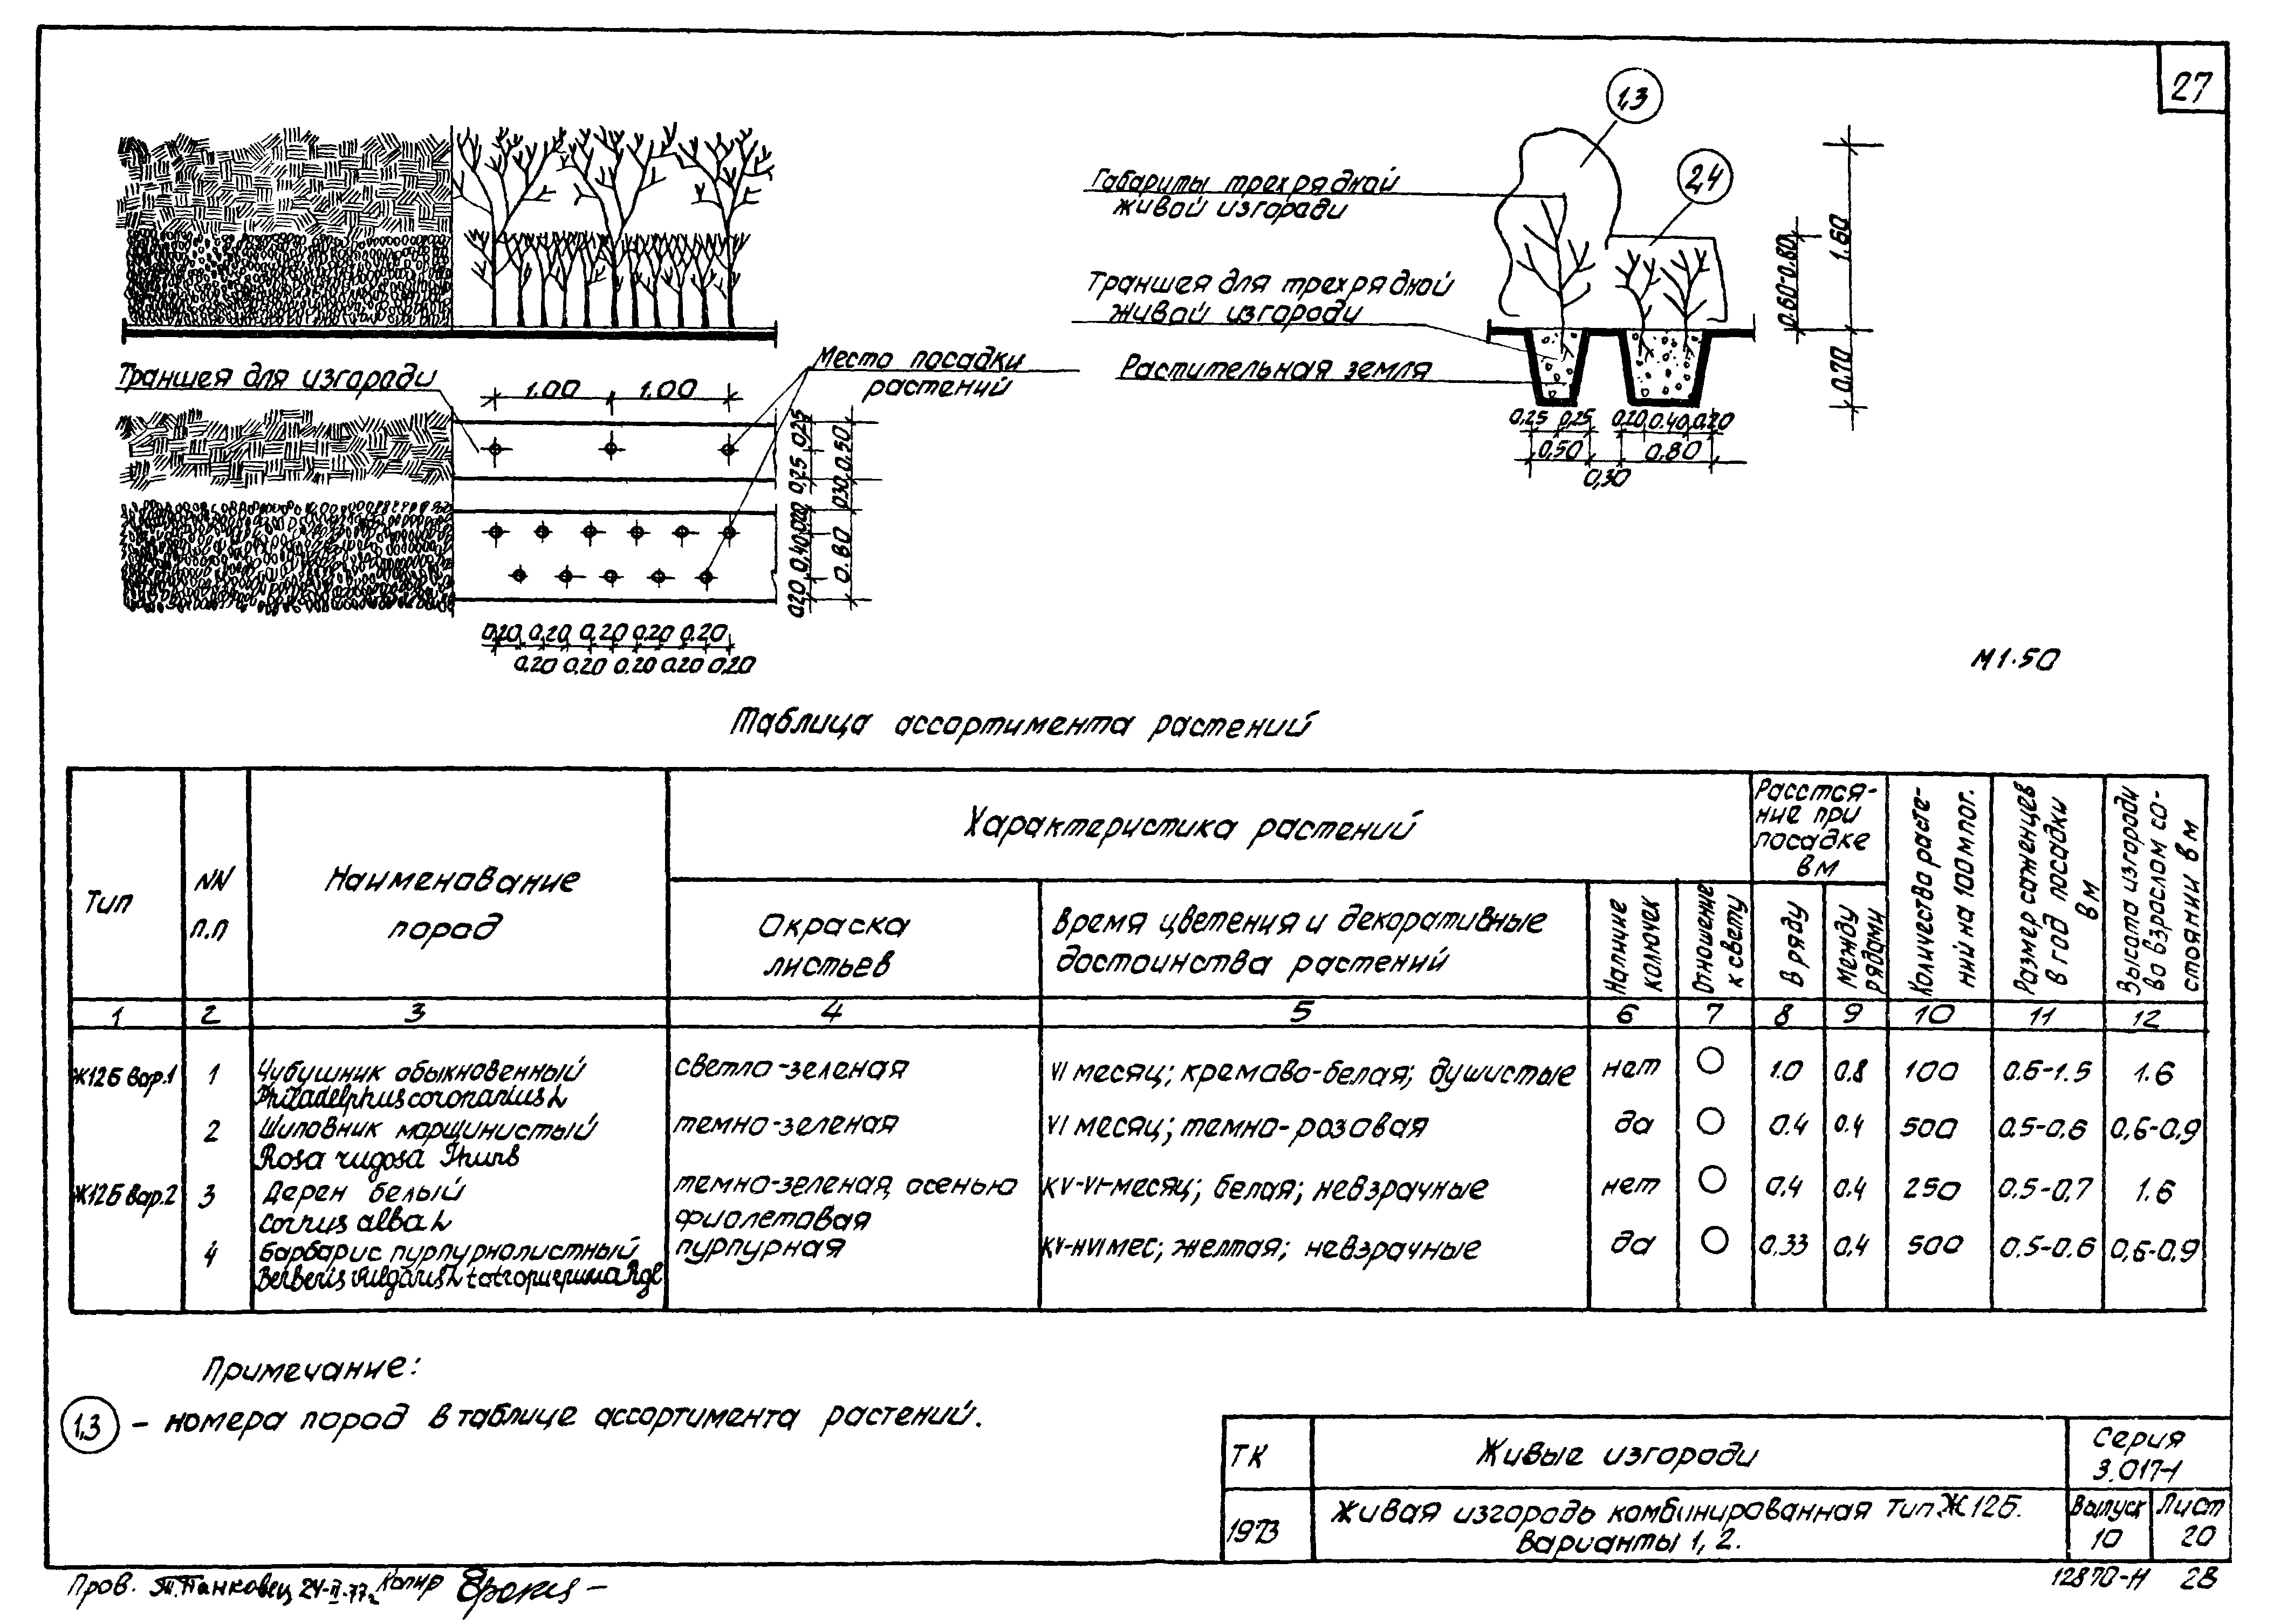 27
1,3
2,4
Габариты трехрядной
живой изгороди
Траншея для трехрядной
живой изгороди
Растительная земля
0.60-0.80
1.60
0,70
0,25 0,25 0.20 0.40 0.20
0,50 0.80
0,30
Траншея для изгороди
Место посадки
растений
1.00 1.00
0,25 0,25
0.50
0.30
0.20 0,40 0.20
0.80
0.20 0.20 0.20 0.20 0.20
0.20 0.20 0.20 0.20 0.20
М1·50
Таблица ассортимента растений
Тип
NN
п.п
Наименование
пород
Характеристика растений
Окраска
листьев
Время цветения и декоративные
достоинства растений
Наличие
колючек
Отношение
к свету
Расстоя-
ние при
посадке
в м
В ряду
Между
рядами
Количества расте-
ний на 100 м пог.
Размер саженцев
в год посадки
в м
Высота изгороди
во взрослом со-
стоянии в м
1 2 3 4 5 6 7 8 9 10 11 12
Ж12б вар.1 1 Чубушник обыкновенный светло-зеленая VI месяц; кремово-белая; душистые нет ○ 1.0 0,8 100 0.6-1.5 1.6
Philadelphus coronarius L
2 Шиповник морщинистый темно-зеленая VI месяц; темно-розовая да ○ 0.4 0.4 500 0.5-0,6 0,6-0,9
Rosa rugosa Thunb
Ж12б вар.2 3 Дерен белый темно-зеленая, осенью КV-VI-месяц; белая; невзрачные нет ○ 0,4 0.4 250 0.5-0,7 1.6
Cornus alba L фиолетовая
4 Барбарис пурпурнолистный пурпурная КV-НVI мес; желтая; невзрачные да ○ 0,33 0,4 500 0.5-0.6 0,6-0,9
Berberis vulgaris L
Примечание:
1,3 – номера пород в таблице ассортимента растений.
ТК
Живые изгороди
Серия
3.017-1
1973
Живая изгородь комбинированная Тип Ж12б.
Варианты 1, 2.
Выпуск
10
Лист
20
Пров. Т.Панковец 24-II-77г. Копир
12870-Н 28